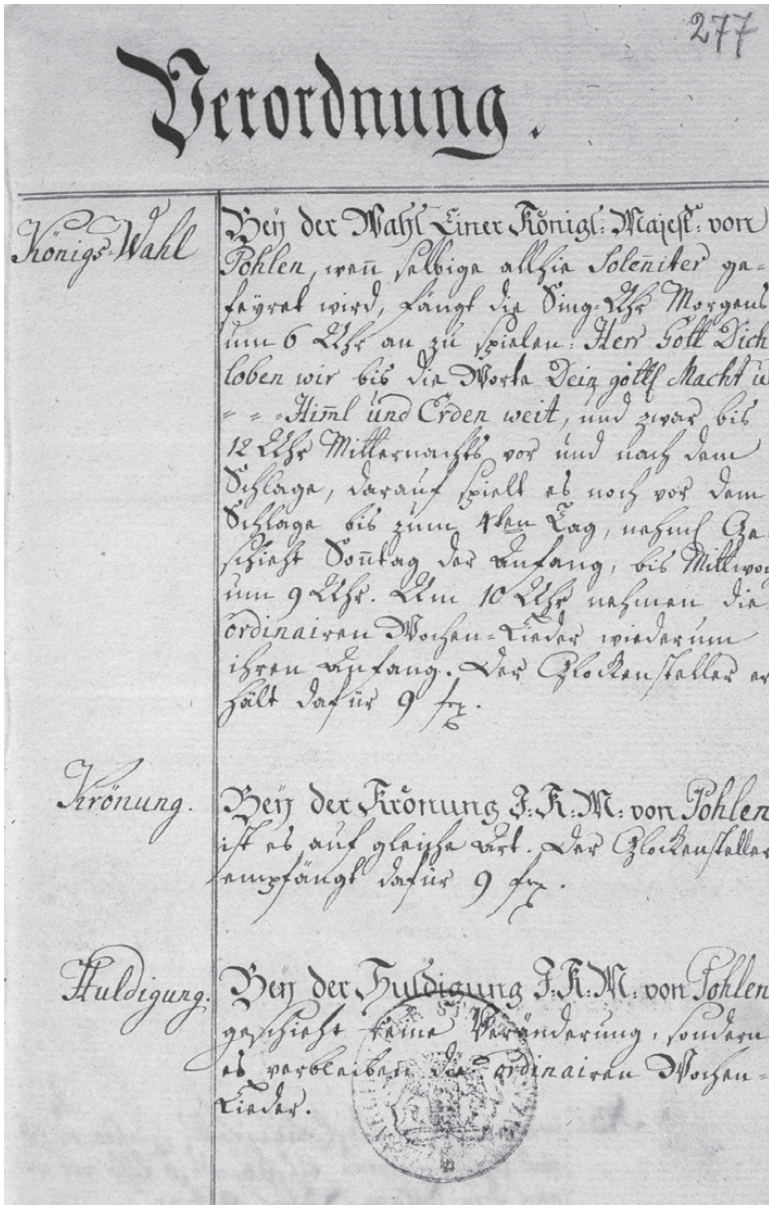 277
Verordnung.
Königs-Wahl
Bey der Wahl Einer Königl: Majest: von
Pohlen, wen̄ selbige allhie Solen̄iter ge-
feyret wird, fängt die Sing-Uhr Morgens
um 6 Uhr an zu spielen: Herr Gott Dich
loben wir bis die Worte Dein göttl Macht u
- - - Him̄l und Erden weit, und zwar bis
12 Uhr Mitternachts vor und nach dem
Schlage, darauf spielt es noch vor dem
Schlage bis zum 4ten Tag, nehml Ge-
schieht Son̄tag der Anfang, bis Mittwoch
um 9 Uhr. Um 10 Uhr nehmen die
ordinairen Wochen-Lieder wiederum
ihren Anfang. Der Glockensteller er
hält dafür 9
Krönung.
Bey der Krönung I: K: M: von Pohlen
ist es auf gleiche Art. Der Glockensteller
empfängt dafür 9
Huldigung.
Bey der Huldigung I: K: M: von Pohlen
geschieht keine Veränderung, sondern
es verbleiben die ordinairen Wochen-
Lieder.